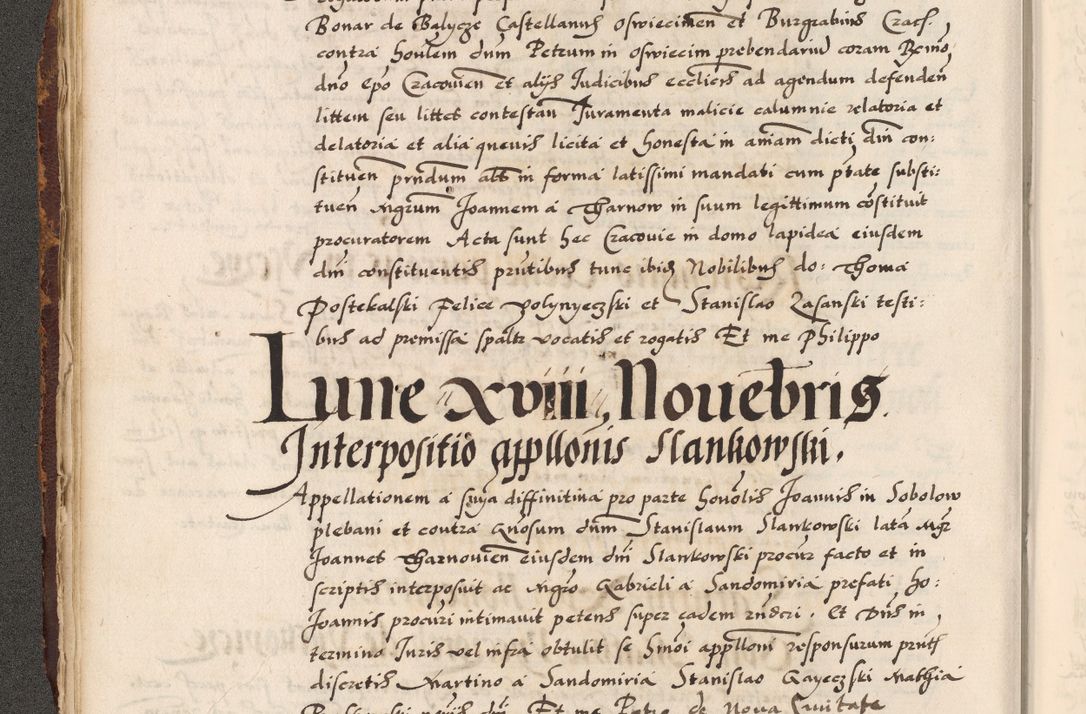 Bonar de Balycze Castellanus Oswiecimen et Burgrabius Cracf.
contra houlem dnm Petrum in Oswiecim prebendariu coram Rcmo
dno epo Cracovien et alys Judicibus ecclicis ad agendum defenden
littem seu littes contestan Juramenta malicie calumnie relatoria et
delatoria et alia quevis licita et honesta in aniam dicti dni con:
stituen prndum abt in forma latissimi mandati cum ptate substi:
tuen Mgrum Joannem a Tharnow in suum legittimum costituit
procuratorem Acta sunt hec Cracovie in domo lapidea eiusdem
dni constituentis prntibus tunc ibid Nobilibus do: Thoma
Postekalski Felice Volynyeczski et Stanislao Zasanski testi:
bus ad premissa spaltr vocatis et rogatis Et me Philippo
Lune xviii, Nouebris
Interpositio appllonis Slankowski.
Appellationem a snya diffinitiua pro parte honolis Joannis in Sobolow
plebani et contra Gnosum dnm Stanislaum Slankowski lata Mgr
Joannes Tharnovien eiusdem dni Slankowski procur facto et in
scriptis interposuit ac Mgro Gabrieli a Sandomiria prefati ho:
Joannis procuri intimauit petens super eadem rnderi. Et Dns in
termino Juris vel infra obtulit se hmoi applloni responsurum pntib
discretis Martino a Sandomiria Stanislao Gayeczski Mathia
Et me Petro de Nova Civitate